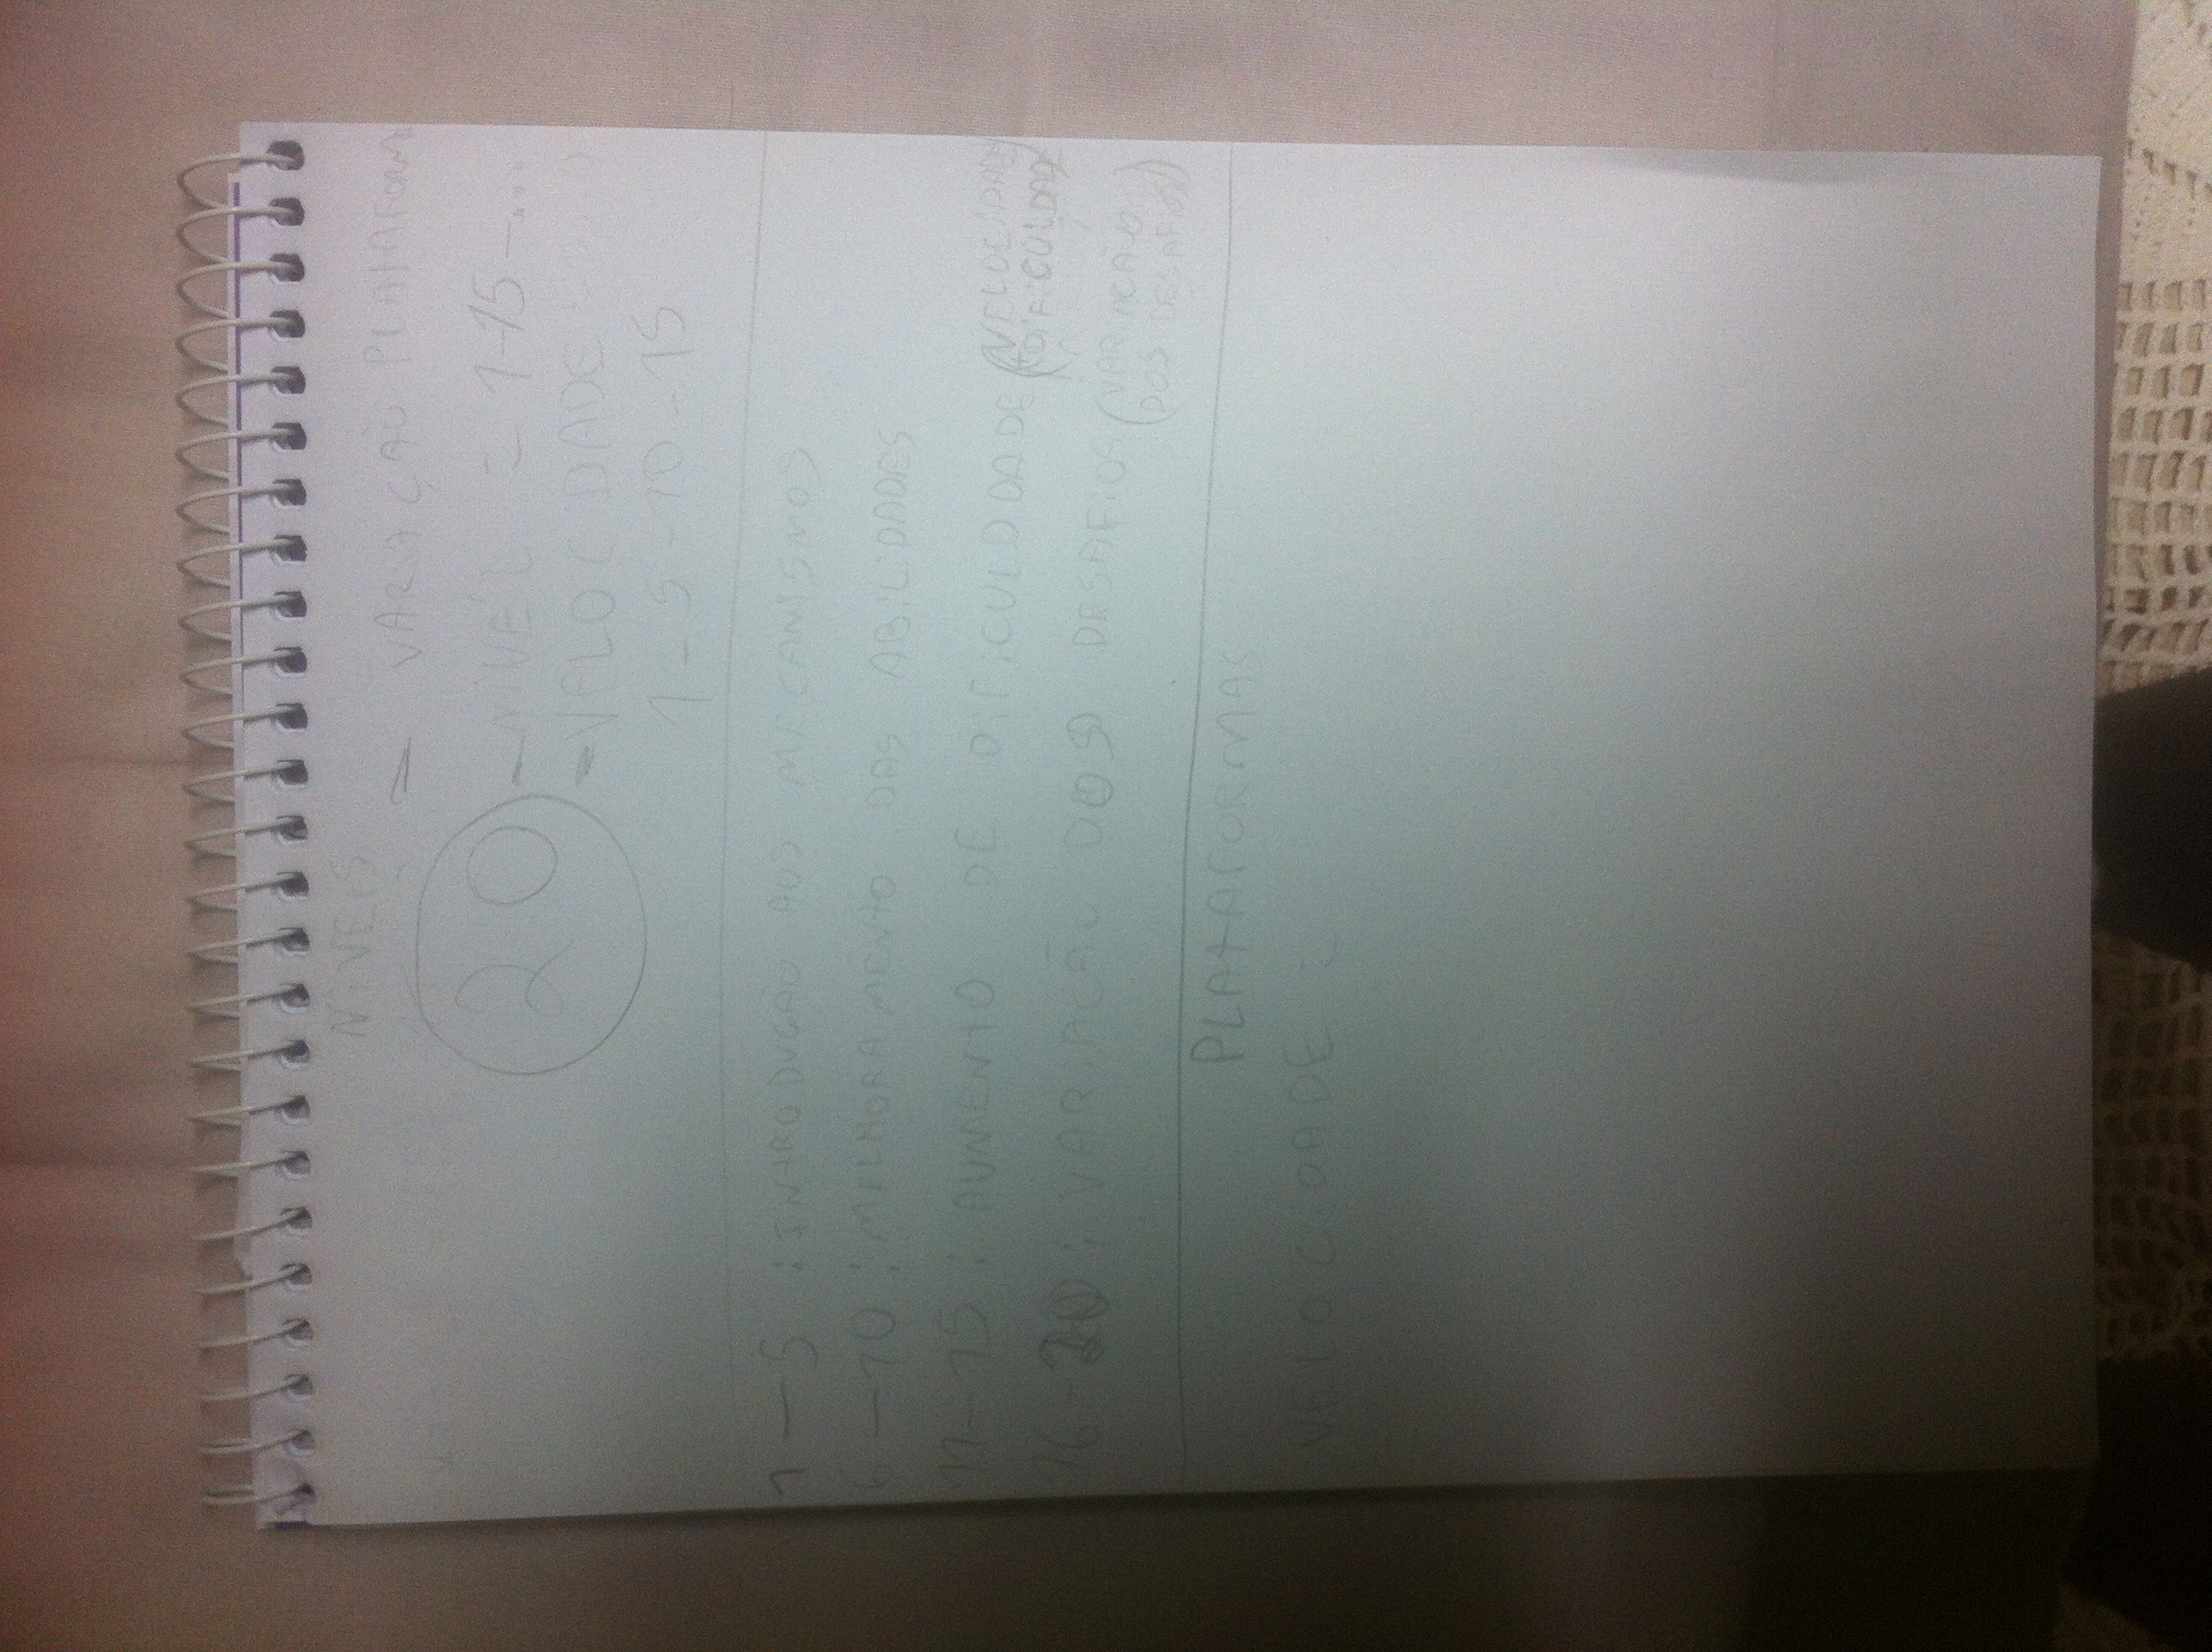 NÍVEIS
- VARIAÇÃO PLATAFORM
20
- NÍVEL = 1-15-...
- VELOCIDADE
1-5-10-15
1-5 : INTRODUÇÃO AOS MECANISMOS
6-10 : MELHORAMENTO DAS ABILIDADES
11-15 : AUMENTO DE DIFICULDDADE (VELOCIDADE
+DIFICULDADE
16-20 : VARIAÇÃO DOS DESAFIOS (VARIAÇÃO
DOS DESAFIOS)
PLATAFORMAS
VELOCIDADE =